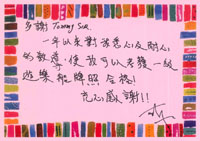 多謝 Tommy Sir
一年以來對我悉心及耐心
的教導，使我可以考獲一級
遊樂船牌照合格！
衷心感謝!!